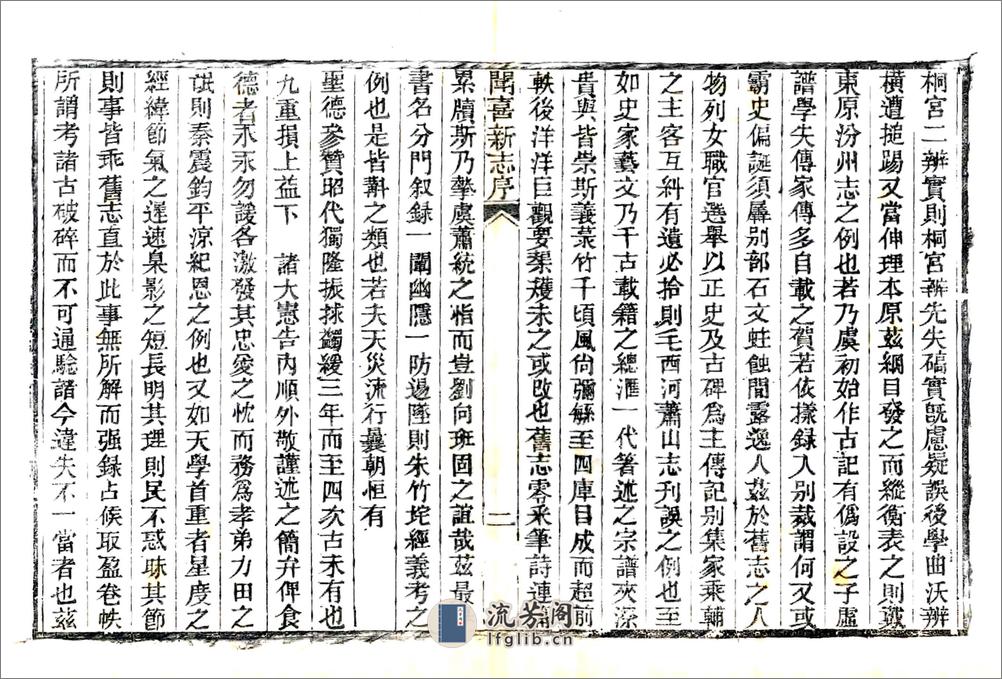 桐宮二辨實則桐宮辨先失碻實旣慮疑誤後學曲沃辨
橫遭搥踢又當伸理本原茲綱目發之而縱衡表之則戴
東原汾州志之例也若乃虞初始作古記有僞設之子虛
譜學失傳家傳多自載之賀若依㨾錄入別裁謂何又或
霸史偏誕須屬別部石文蛀蝕閒露逸人茲於舊志之人
物列女職官選舉以正史及古碑爲主傳記別集家乘輔
之主客互糾有遺必拾則毛西河蕭山志刊誤之例也至
如史家藝文乃千古載籍之總滙一代箸述之宗譜夾漈
貴與皆崇斯義菉竹千頃風尙彌緜至四庫目成而超前
軼後洋洋巨觀要渠矱未之或改也舊志零釆筆詩連篇
聞喜新志序 二
累牘斯乃摯虞蕭統之恉而豈劉向班固之誼哉茲最
書名分門叙錄一闡幽隱一防遏墜則朱竹垞經義考之
例也是皆斠之類也若夫天災流行曩朝恒有
聖德參贊昭代獨隆振捄蠲緩三年而至四次古未有也
九重損上益下 諸大憲吿內順外敬謹述之簡弁俾食
德者永永勿諼各激發其忠愛之忱而務爲孝弟力田之
氓則秦震鈞平涼紀恩之例也又如天學首重者星度之
經緯節氣之遲速臬影之短長明其理則民不惑昧其節
則事皆乖舊志直於此事無所解而强錄占候取盈卷帙
所謂考諸古破碎而不可通驗諸今違失不一當者也茲
流芳阁
lfglib.cn